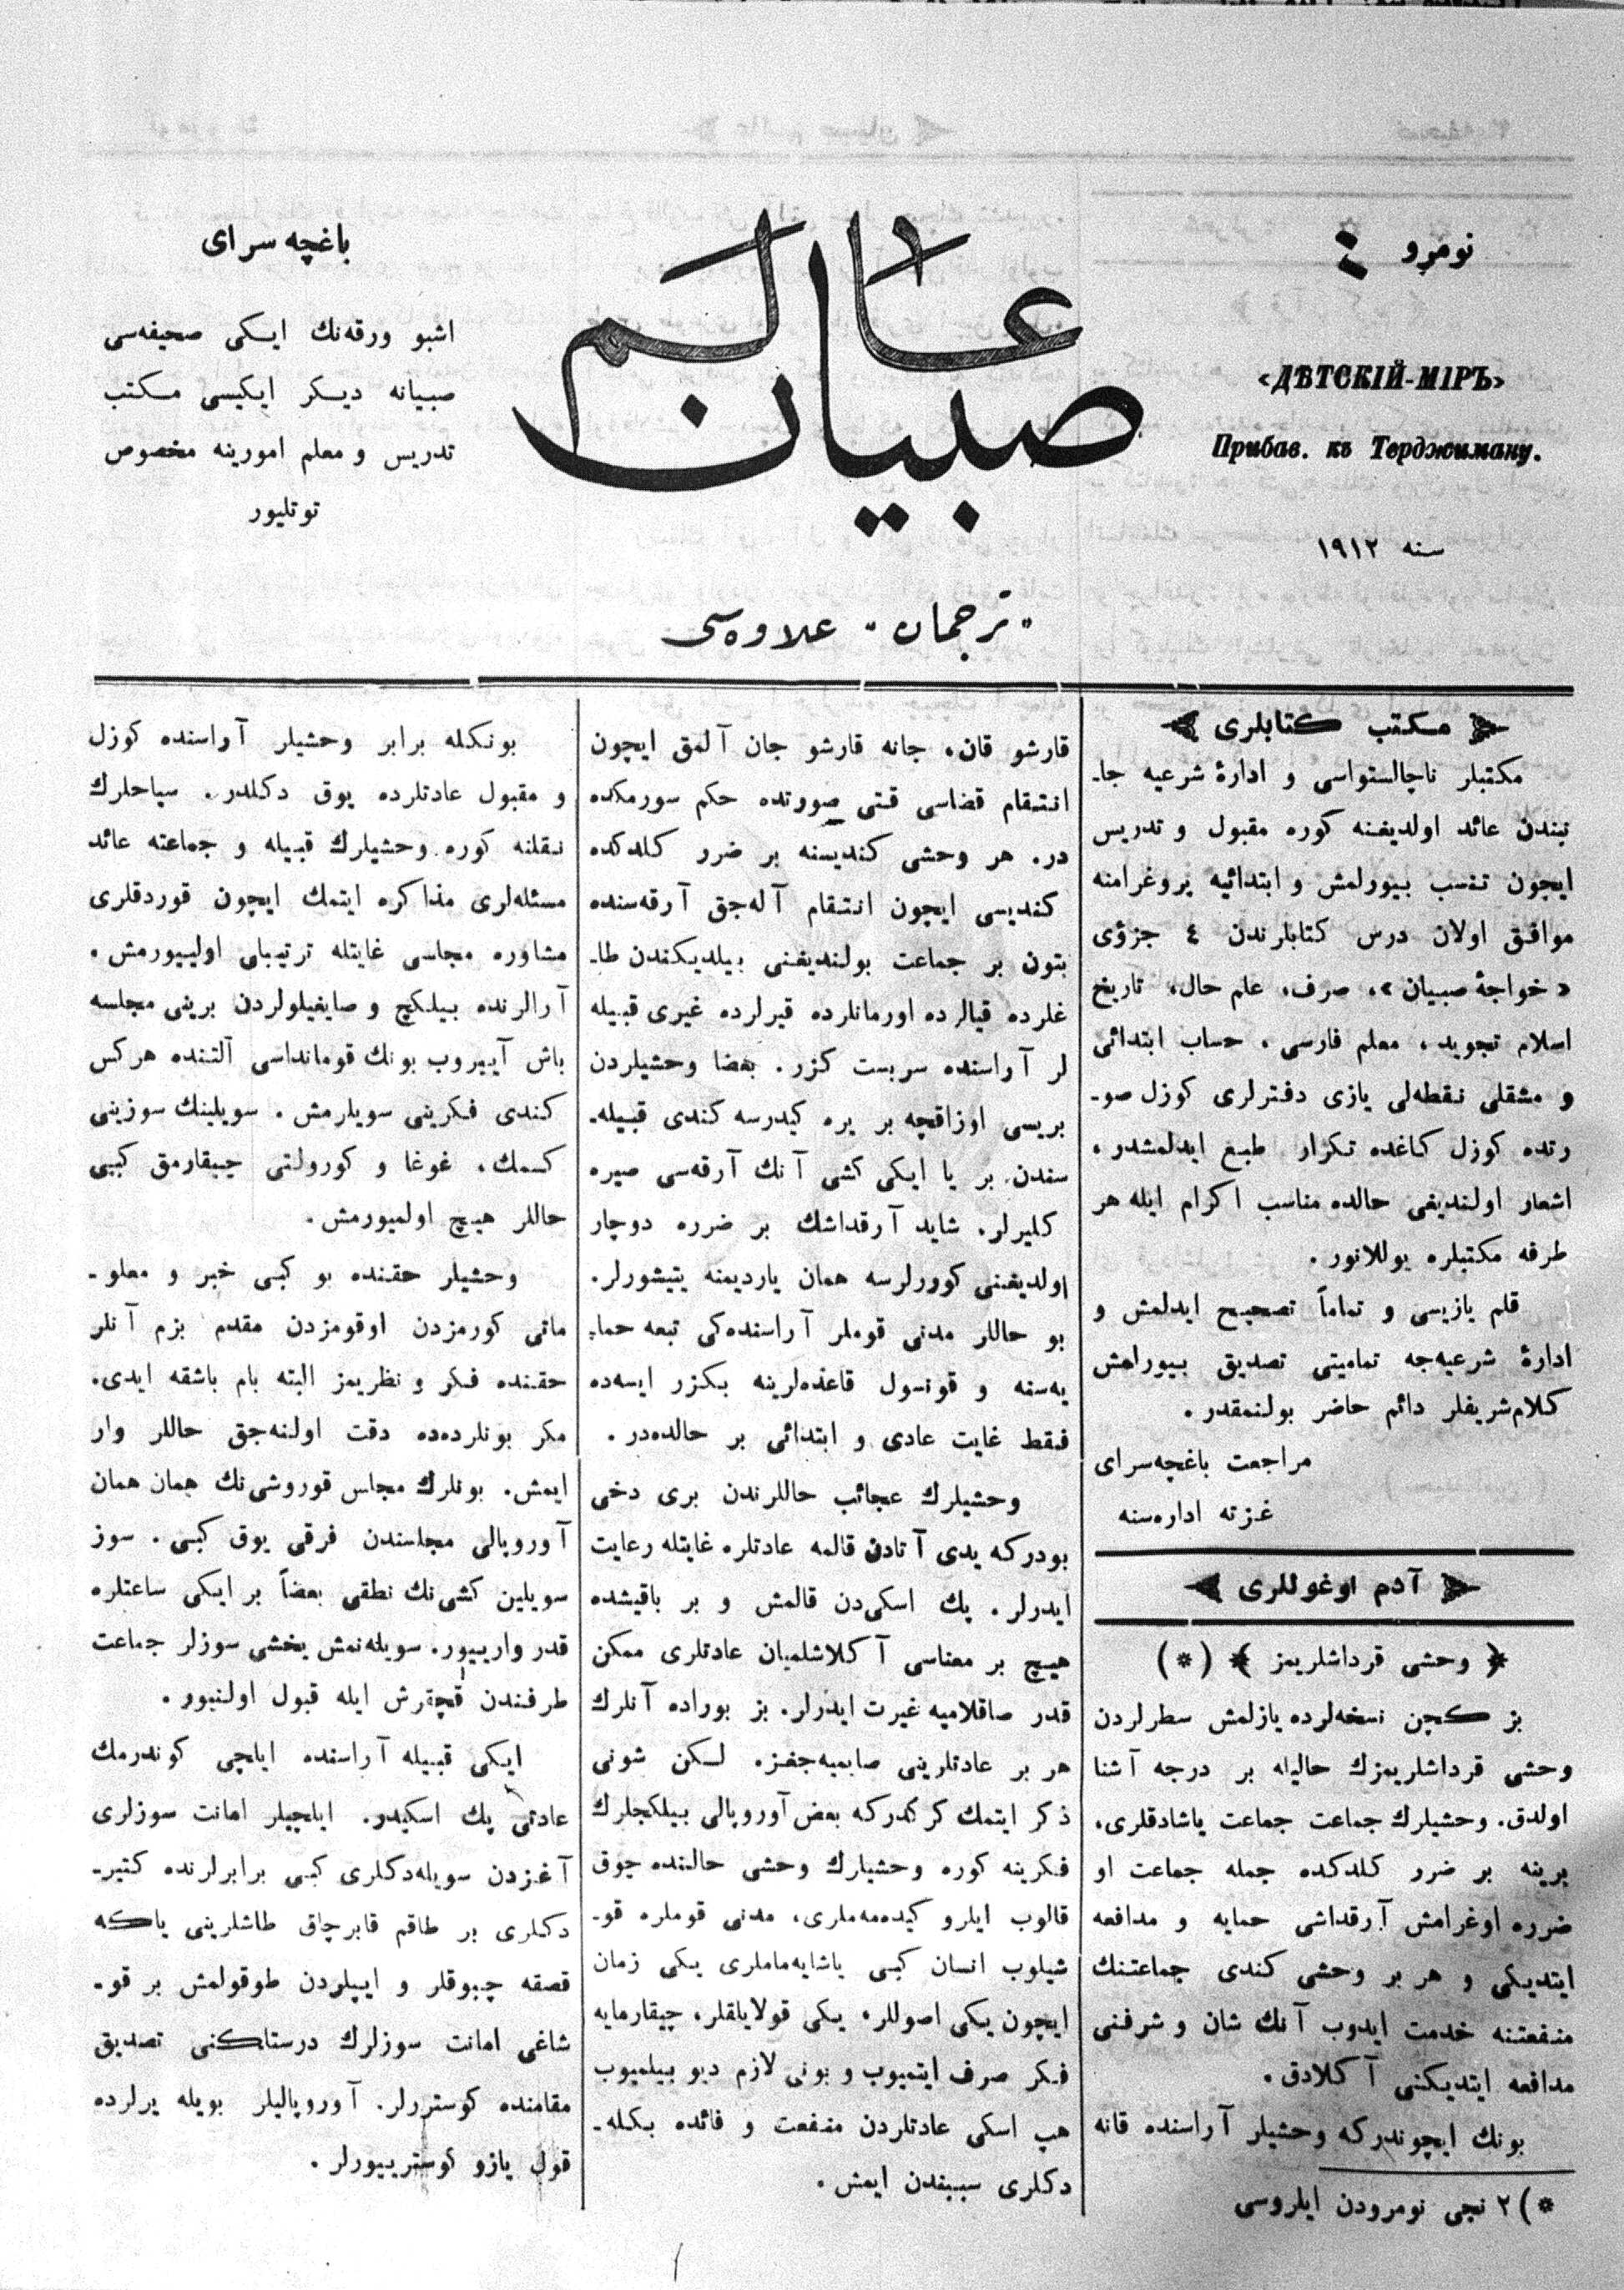 نومرو ٤
«ДѢТСКІЙ-МІРЪ»
Прибав. къ Терджиману.
سنه ١٩١٢
عالم صبيان
" ترجمان " علاوه‌سی
باغچه سرای
اشبو ورقه‌نك ایکی صحیفه‌سی
صبیانه دیکر ایکیسی مکتب
تدریس و معلم امورینه مخصوص
توتلیور
مکتب کتابلری
مکتبلر ناچالستواسی و ادارهٔ شرعیه جا-
نبندن عائد اولدیغنه کوره مقبول و تدریس
ایچون تنسب بیورلمش و ابتدائیه پروغرامنه
موافق اولان درس کتابلرندن ٤ جزؤی
«خواجهٔ صبیان»، صرف، علم حال، تاریخ
اسلام تجوید، معلم فارسی، حساب ابتدائی
و مشقلی نقطه‌لی یازی دفترلری کوزل صو-
رتده کوزل کاغده تکرار طبع ایدلمشدر،
اشعار اولندیغی حالده مناسب اکرام ایله هر
طرفه مکتبلره یوللانور.
قلم یازیسی و تماماً تصحیح ایدلمش و
ادارهٔ شرعیه‌جه تمامیتی تصدیق بیورلمش
کلام‌شریفلر دائم حاضر بولنمقدر.
مراجعت باغچه‌سرای
غزته اداره‌سنه
آدم اوغوللری
﴿ وحشی قرداشلریمز ﴾ (*)
بز کچن نسخه‌لرده یازلمش سطرلردن
وحشی قرداشلریمزك حالیله بر درجه آشنا
اولدق. وحشیلرك جماعت جماعت یاشادقلری،
برینه بر ضرر کلدکده جمله جماعت او
ضرره اوغرامش آرقداشی حمایه و مدافعه
ایتدیکی و هر بر وحشی کندی جماعتنك
منفعتنه خدمت ایدوب آنك شان و شرفنی
مدافعه ایتدیکنی آکلادق.
بونك ایچوندرکه وحشیلر آراسنده قانه
*) ٢ نجی نومرودن ایلروسی
قارشو قان، جانه قارشو جان آلمق ایچون
انتقام قضاسی قتی صورتده حکم سورمکده
در. هر وحشی کندیسنه بر ضرر کلدکده
کندیسی ایچون انتقام آله‌جق آرقه‌سنده
بتون بر جماعت بولندیغنی بیلدیکندن طا-
غلرده قیالرده اورمانلرده قیرلرده غیری قبیله
لر آراسنده سربست کزر. بعضا وحشیلردن
بریسی اوزاقچه بر یره کیدرسه کندی قبیله-
سندن بر یا ایکی کشی آنك آرقه‌سی صیره
کلیرلر. شاید آرقداشك بر ضرره دوچار
اولدیغنی کوررلرسه همان یاردیمنه یتیشورلر.
بو حاللر مدنی قوملر آراسنده‌کی تبعه حما-
یه‌سنه و قونسول قاعده‌لرینه بکزر ایسه‌ده
فقط غایت عادی و ابتدائی بر حالده‌در.
وحشیلرك عجائب حاللرندن بری دخی
بودرکه یدی آتادن قالمه عادتلره غایتله رعایت
ایدرلر. پك اسکی‌دن قالمش و بر باقیشده
هیچ بر معناسی آکلاشلمیان عادتلری ممکن
قدر صاقلامیه غیرت ایدرلر. بز بوراده آنلرك
هر بر عادتلرینی صایمیه‌جغز. لکن شونی
ذکر ایتمك کرکدرکه بعض آوروپالی بیلکجلرك
فکرینه کوره وحشیلرك وحشی حالنده چوق
قالوب ایلرو کیده‌مه‌ملری، مدنی قوملره قو-
شیلوب انسان کبی یاشایه‌ماملری یکی زمان
ایچون یکی اصوللر، یکی قولایلقلر، چیقارمایه
فکر صرف ایتمیوب و بونی لازم دیو بیلمیوب
هپ اسکی عادتلردن منفعت و فائده بکله-
دکلری سببندن ایمش.
بونکله برابر وحشیلر آراسنده کوزل
و مقبول عادتلرده یوق دکلدر. سیاحلرك
نقلنه کوره وحشیلرك قبیله و جماعته عائد
مسئله‌لری مذاکره ایتمك ایچون قوردقلری
مشاوره مجلسی غایتله ترتیبلی اولیورمش.
آرالرنده بیلکچ و صایغیلولردن برینی مجلسه
باش آییروب بونك قوماندا‌سی آلتنده هرکس
کندی فکرینی سویلرمش. سویلینك سوزینی
کسمك، غوغا و کورولتی چیقارمق کبی
حاللر هیچ اولمیورمش.
وحشیلر حقنده بو کبی خبر و معلو-
ماتی کورمزدن اوقومزدن مقدم بزم آنلر
حقنده فکر و نظریمز البته بام باشقه ایدی.
مکر بونلرده‌ده دقت اولنه‌جق حاللر وار
ایمش. بونلرك مجلس قوروشی‌نك همان همان
آوروپالی مجلسندن فرقی یوق کبی. سوز
سویلین کشی‌نك نطقی بعضاً بر ایکی ساعتلره
قدر واریور. سویله‌نمش یخشی سوزلر جماعت
طرفندن قچقرش ایله قبول اولنیور.
ایکی قبیله آراسنده ایلچی کوندرمك
عادتی پك اسکیدر. ایلچیلر امانت سوزلری
آغزدن سویله‌دکلری کبی برابرلرنده کتیر-
دکلری بر طاقم قابرچاق طاشلرینی یاکه
قصقه چبوقلر و ایپلردن طوقولمش بر قو-
شاغی امانت سوزلرك درستلکنی تصدیق
مقامنده کوستررلر. آوروپالیلر بویله یرلرده
قول یازو کوستریورلر.